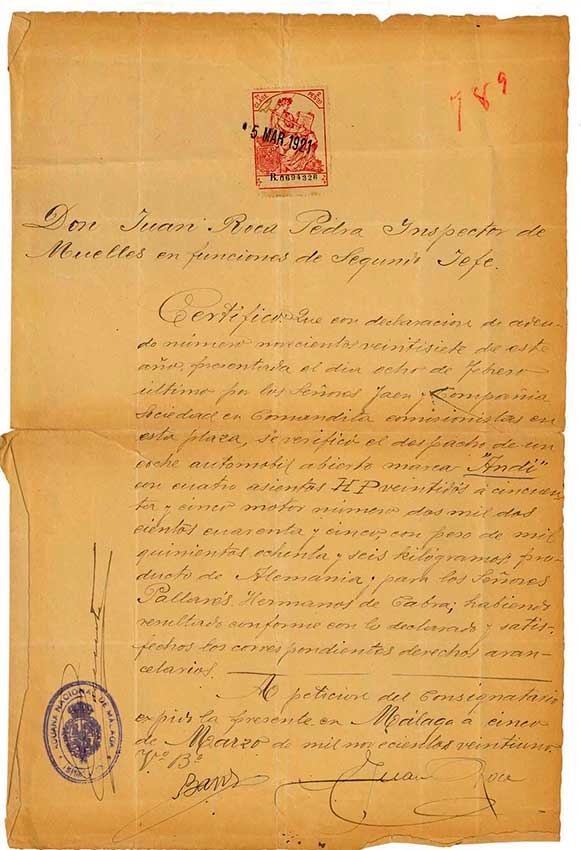 789
5 MAR. 1921
R.0694326
Don Juan Roca Pedra Inspector de
Muelles en funciones de Segundo Jefe.
Certifico: Que con declaracion de adeu-
do número novecientos veintisiete de este
año, presentada el dia ocho de Febrero
último por los Señores Jaen y Compañia
Sociedad en Comandita comisionistas en
esta plaza, se verificó el despacho de un
coche automobil abierto marca "Andi"
con cuatro asientos HP veintidós á cincuen-
ta y cinco motor número dos mil dos
cientos cuarenta y cinco con peso de mil
quinientos ochenta y seis kilógramos, pro-
ducto de Alemania; para los Señores
Pallarés Hermanos de Cabra; habiendo
resultado conforme con lo declarado y satis-
fechos los correspondientes derechos aran-
celarios.
A peticion del Consignatario
expido la presente en Málaga a cinco
de Marzo de mil novecientos veintiuno.
Vº Bº
Juan Roca
ADUANA NACIONAL DE MALAGA